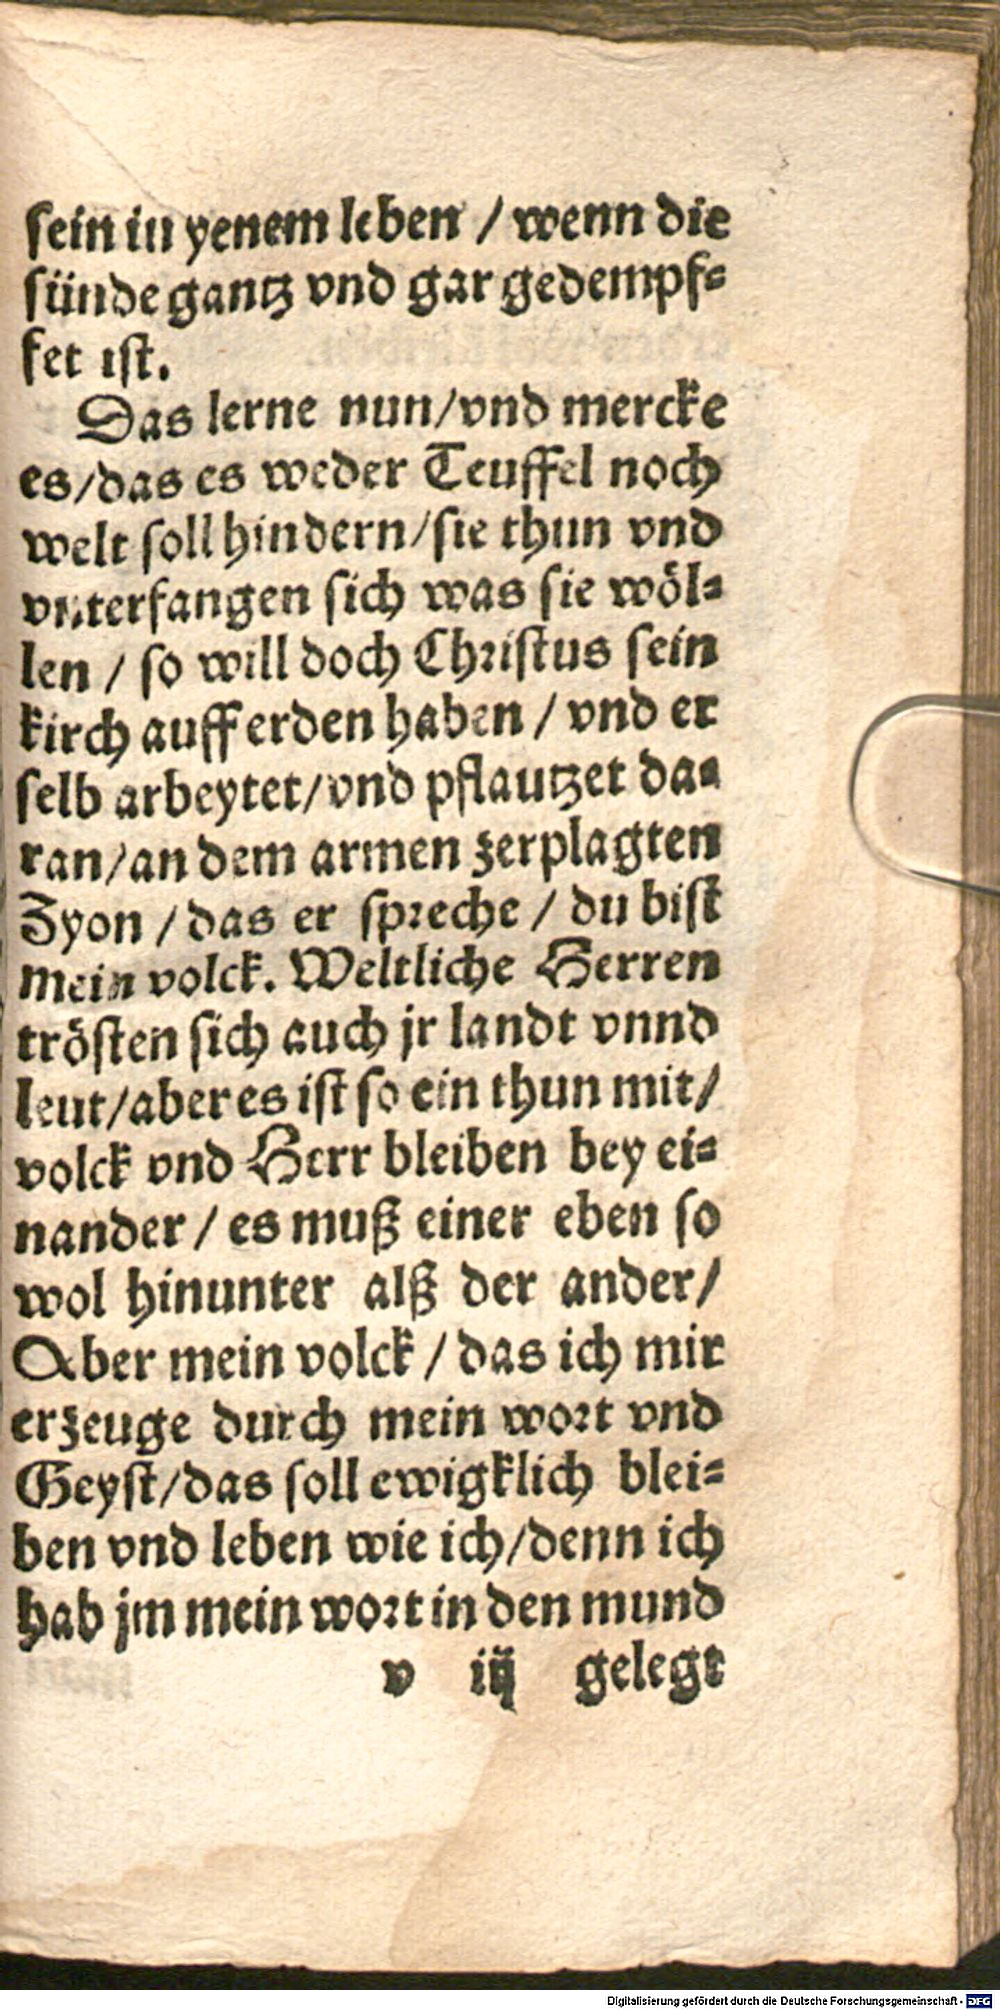 sein in yenem leben / wenn die
sünde gantz vnd gar gedempf⸗
fet ist.
Das lerne nun/vnd mercke
es/das es weder Teuffel noch
welt soll hindern/sie thun vnd
vnterfangen sich was sie wöl⸗
len / so will doch Christus sein
kirch auff erden haben / vnd er
selb arbeytet/vnd pflautzet da⸗
ran/an dem armen zerplagten
Zyon / das er spreche / du bist
mein volck. Weltliche Herren
trösten sich auch jr landt vnnd
leut/aber es ist so ein thun mit/
volck vnd Herr bleiben bey ei⸗
nander / es muß einer eben so
wol hinunter alß der ander/
Aber mein volck / das ich mir
erzeuge durch mein wort vnd
Geyst/das soll ewigklich blei⸗
ben vnd leben wie ich/denn ich
hab jm mein wort in den mund
v iij gelegt
Digitalisierung gefördert durch die Deutsche Forschungsgemeinschaft - DFG